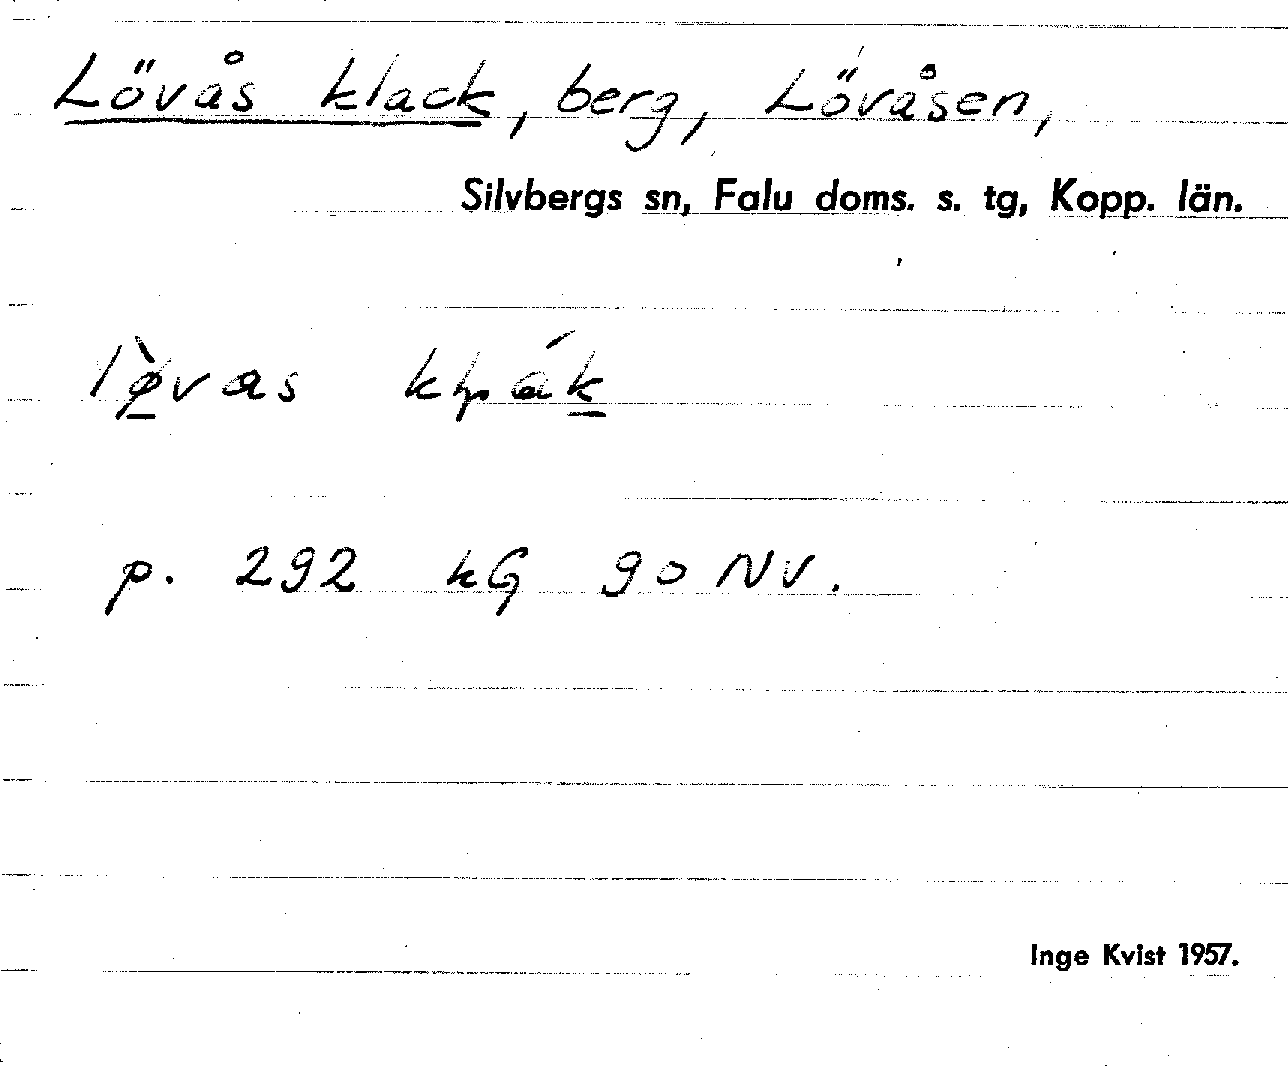 Lövås klack, berg, Lövåsen,
Silvbergs sn, Falu doms. s. tg, Kopp. län.
lø̠̀vas
p. 292 kG 90 NV.
Inge Kvist 1957.